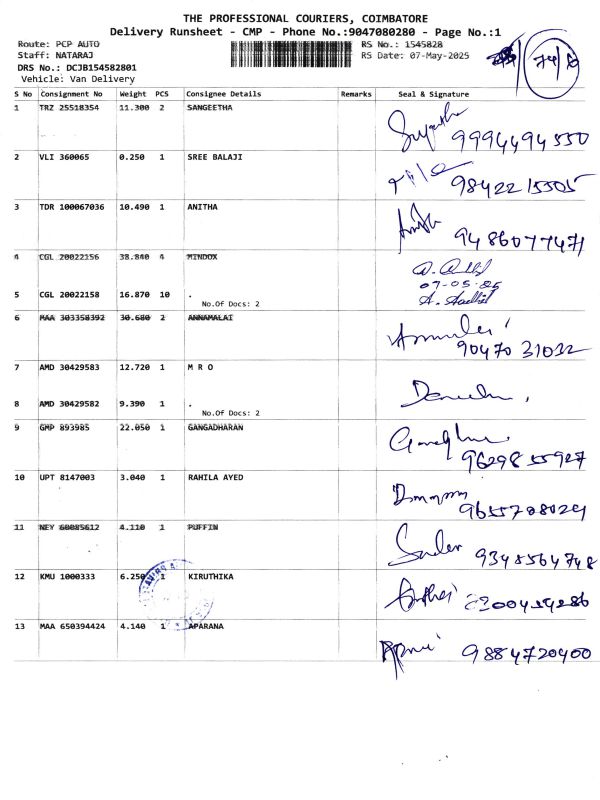 THE PROFESSIONAL COURIERS, COIMBATORE
Delivery Runsheet - CMP - Phone No.:9047080280 - Page No.:1
Route: PCP AUTO RS No.: 1545828
Staff: NATARAJ RS Date: 07-May-2025
DRS No.: DCJB154582801
Vehicle: Van Delivery
S No Consignment No Weight PCS Consignee Details Remarks Seal & Signature
1 TRZ 25518354 11.300 2 SANGEETHA
9994494550
2 VLI 360065 0.250 1 SREE BALAJI
9842215505
3 TDR 100067036 10.490 1 ANITHA
9486077471
4 CGL 20022156 38.840 4 MINDOX
07-05-25
5 CGL 20022158 16.870 10 .
No.Of Docs: 2
6 MAA 303358392 30.680 2 ANNAMALAI
90470 31032
7 AMD 30429583 12.720 1 M R O
8 AMD 30429582 9.390 1 .
No.Of Docs: 2
9 GMP 893985 22.050 1 GANGADHARAN
9629855927
10 UPT 8147003 3.040 1 RAHILA AYED
9655708029
11 NEY 60085612 4.110 1 PUFFIN
9345564748
12 KMU 1000333 6.250 1 KIRUTHIKA
13 MAA 650394424 4.140 1 APARANA
9884720400